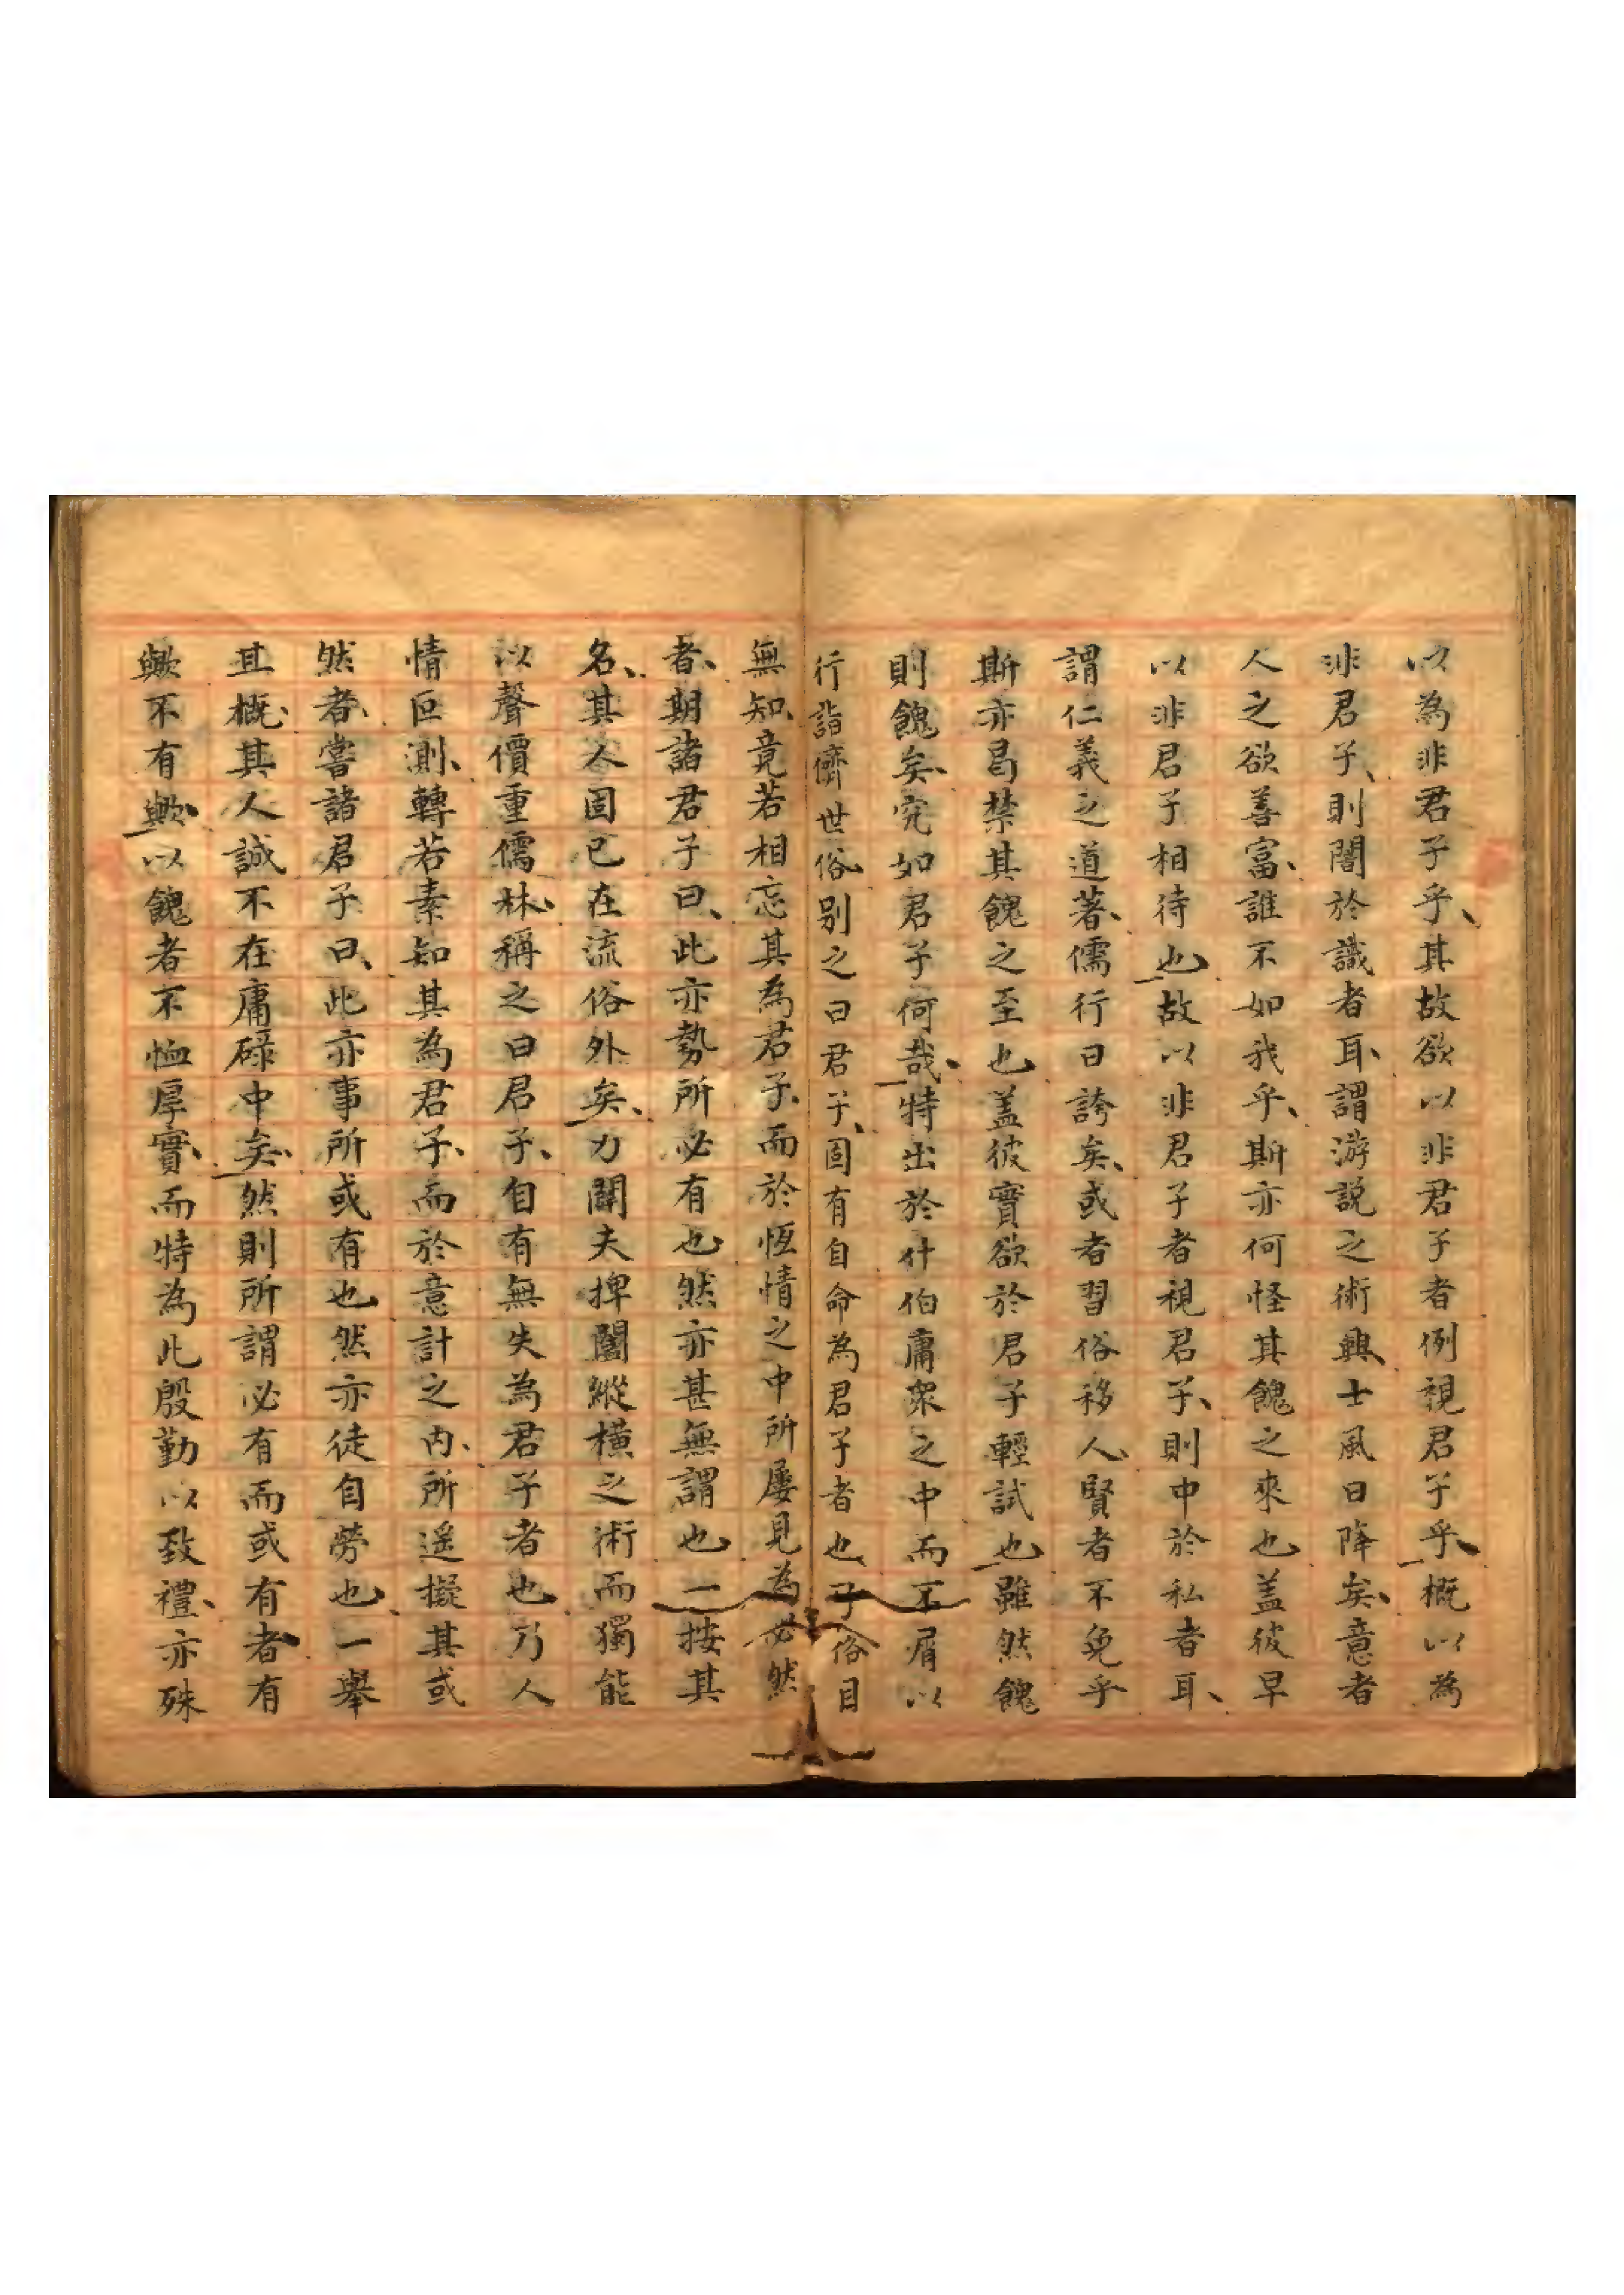 以為非君子乎、其故欲以非君子者例視君子乎、概以為
非君子、則闇於識者耳、謂游説之術興、士風日降矣、意者
人之欲善富、誰不如我乎、斯亦何怪其餽之來也盖彼早
以非君子相待也故以非君子者視君子、則中於私者耳、
謂仁義之道著、儒行日誇矣、或者習俗移人、賢者不免乎
斯亦曷禁其餽之至也盖彼實欲於君子輕試也雖然餽
則餽矣、究如君子何哉、特出於什伯庸衆之中而不屑以
行詣儕世俗、别之曰君子、固有自命為君子者也、子俗目
無知、竟若相忘其為君子、而於恆情之中所屢見為必然
者、期諸君子曰、此亦勢所必有也然亦甚無謂也一按其
名、其人固已在流俗外矣、力闢夫捭闔縱橫之術而獨能
以聲價重儒林、稱之曰君子、自有無失為君子者也乃人
情叵測、轉若素知其為君子、而於意計之内、所遥擬其或
然者、嘗諸君子曰、此亦事所或有也然亦徒自勞也、一舉
其概、其人誠不在庸碌中矣、然則所謂必有而或有者有
歟不有歟、以餽者不恤厚實、而特為此殷勤以致禮、亦殊